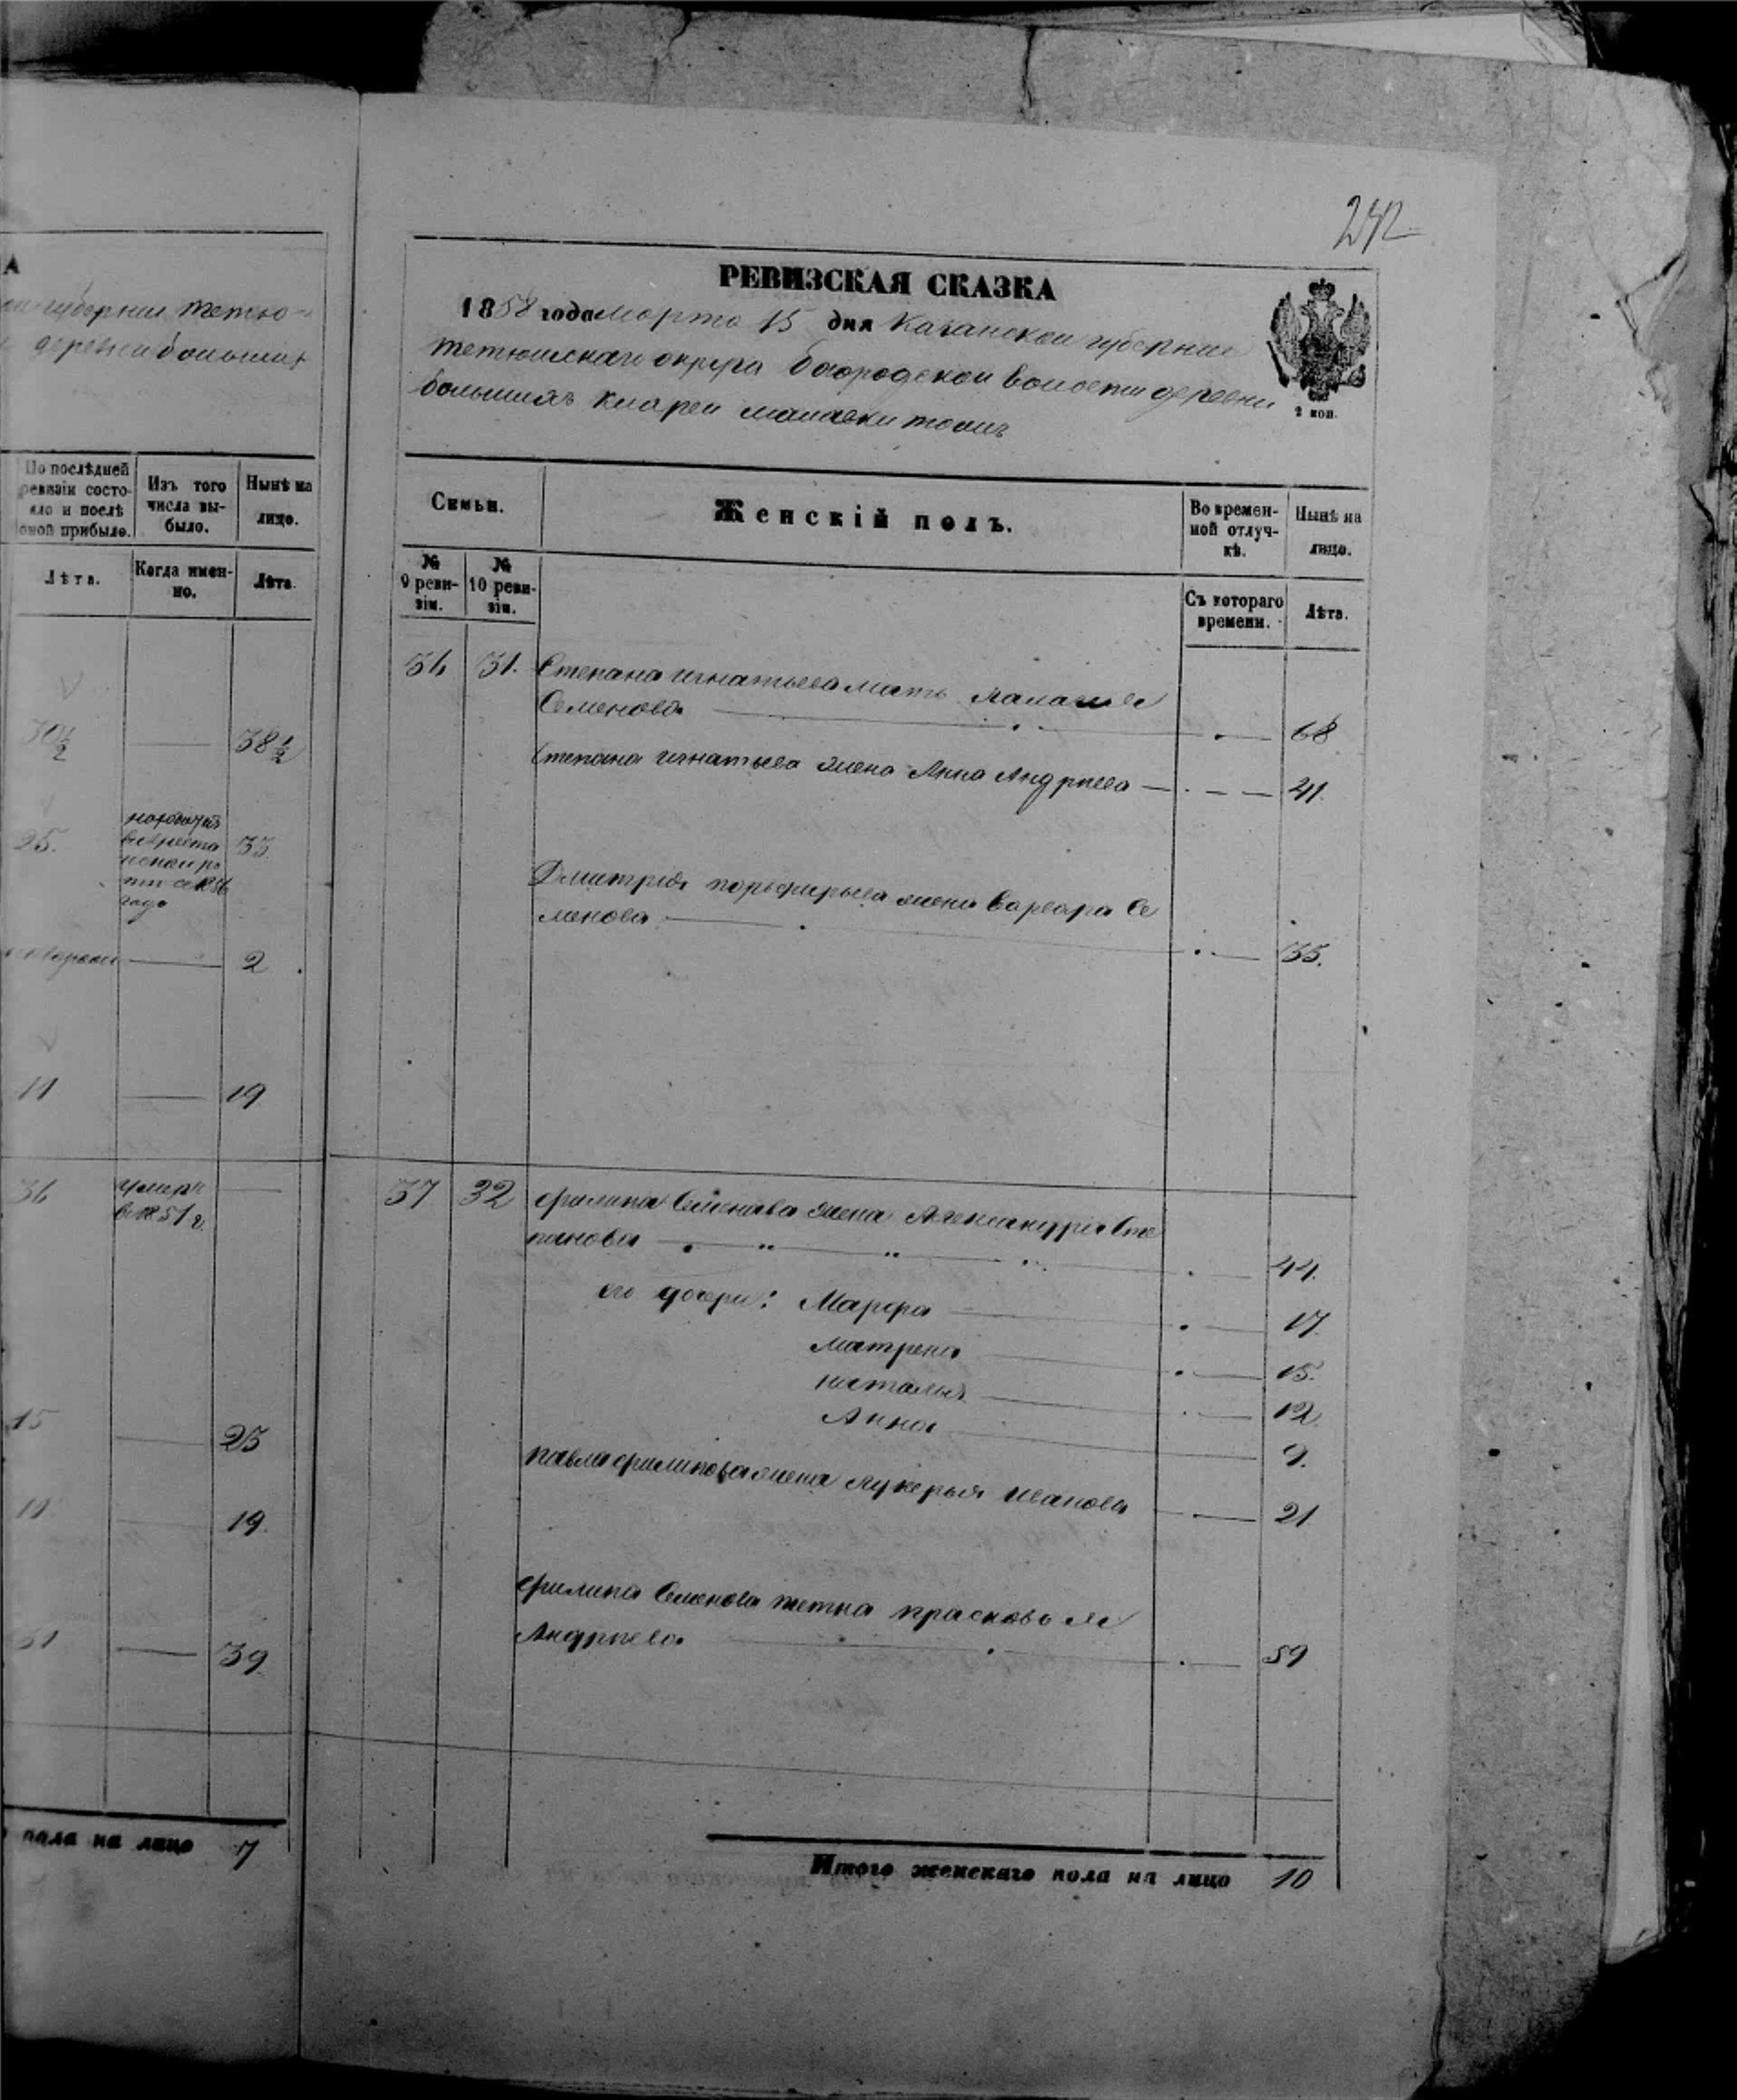 А
губерніи Тетю-
деревни большихъ
По послѣдней
ревизіи состо-
яло и послѣ
оной прибыло.
Изъ того
числа вы-
было.
Нынѣ на
лицо.
Лѣта.
Когда имен-
но.
Лѣта
30½ 38½
25. 33
года
2
11 19
36 умеръ
в 1851 г.
15 23
11 19.
31 39.
пола на лицо 7
242
РЕВИЗСКАЯ СКАЗКА
1858 года Марта 15 дня Казанской губерніи
Тетюшскаго округа богородской волости деревни
большихъ
2 коп.
Семьи.
Женскій полъ.
Во времен-
ной отлуч-
кѣ.
Нынѣ на
лицо.
№
9 реви-
зіи.
№
10 реви-
зіи.
Съ котораго
времени.
Лѣта.
36 31. Степана игнатьева мать
Семенова 68
Степана игнатьева жена Анна Андреева 41.
Дмитрія порфирьева жена Варвара Се
менова 35.
37 32 филипа Семенова жена Александрія Сте
панова 44.
его дочери: Марфа 17.
матрена 15.
наталья 12.
Анна 9.
павла филипова жена лукерья иванова 21
филипа Семенова тетка прасковья
Андреева 59
Итого женскаго пола на лицо 10